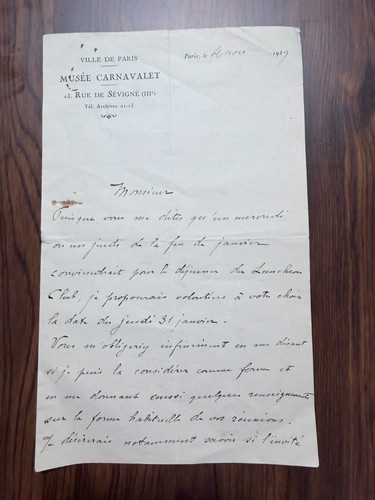 VILLE DE PARIS
MUSÉE CARNAVALET
23, RUE DE SÉVIGNÉ (IIIe)
Tél. Archives 21-13
Paris, le nov 1929
Monsieur
Puisque vous me dites qu'un mercredi
ou un jeudi de la fin de janvier
conviendrait pour le déjeuner du Luncheon
Club, je proposerais volontiers à votre choix
la date du jeudi 31 janvier.
Vous m'obligeriez infiniment en me disant
si je puis la considérer comme ferme et
en me donnant aussi quelques renseignements
sur la forme habituelle de vos réunions.
Je désirerais notamment savoir si l'invité